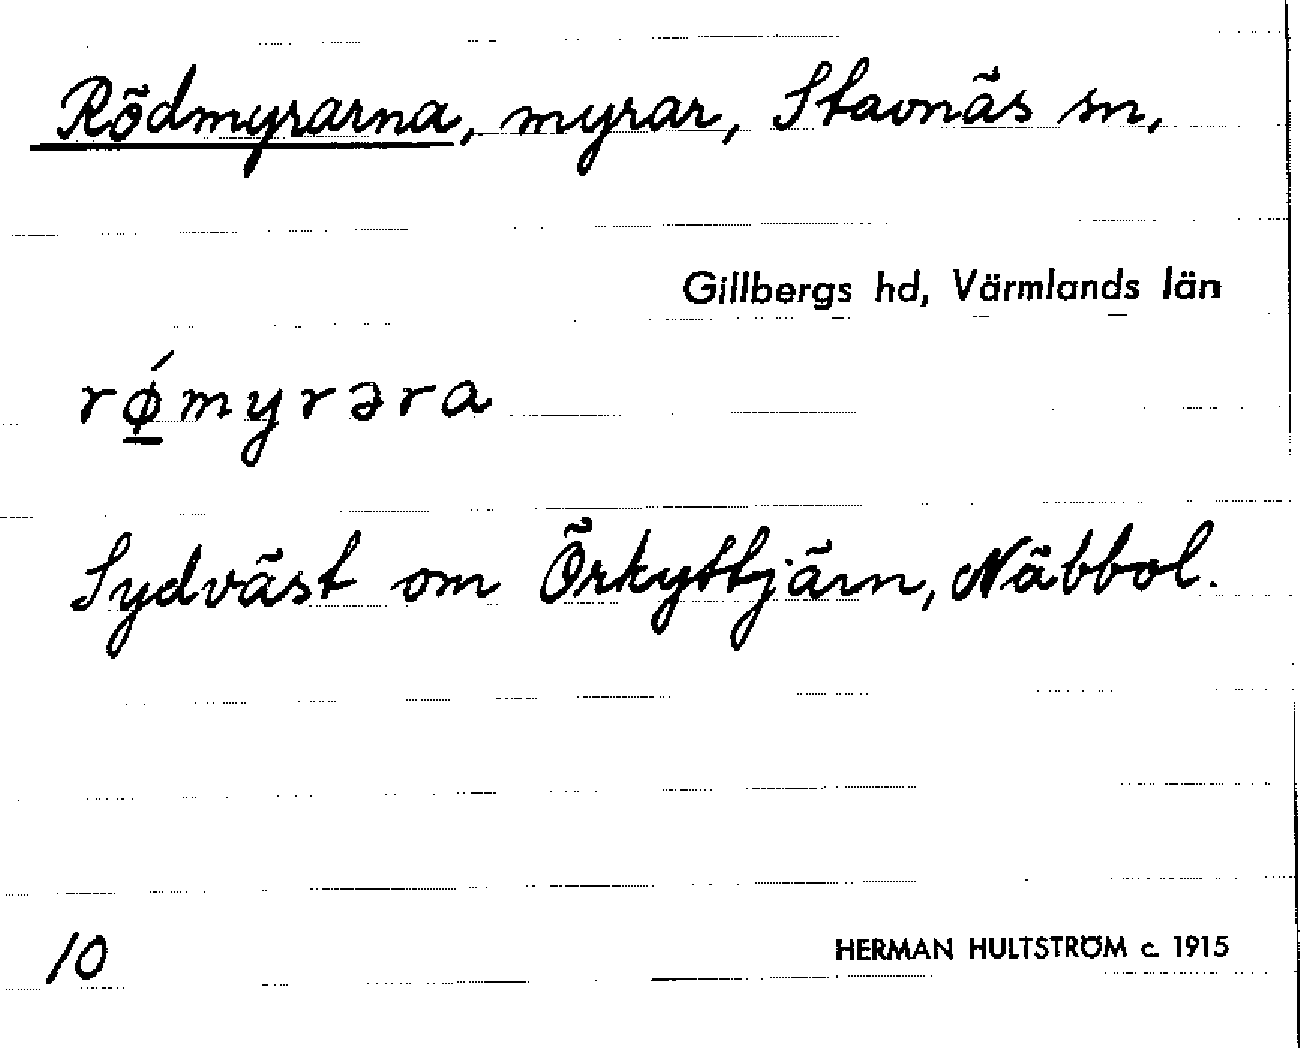 Rödmyrarna, myrar, Stavnäs sn,
Gillbergs hd, Värmlands län
rǿ̱myrəra
Sydväst om Örkyttjärn, Näbbol.
10
HERMAN HULTSTRÖM c. 1915